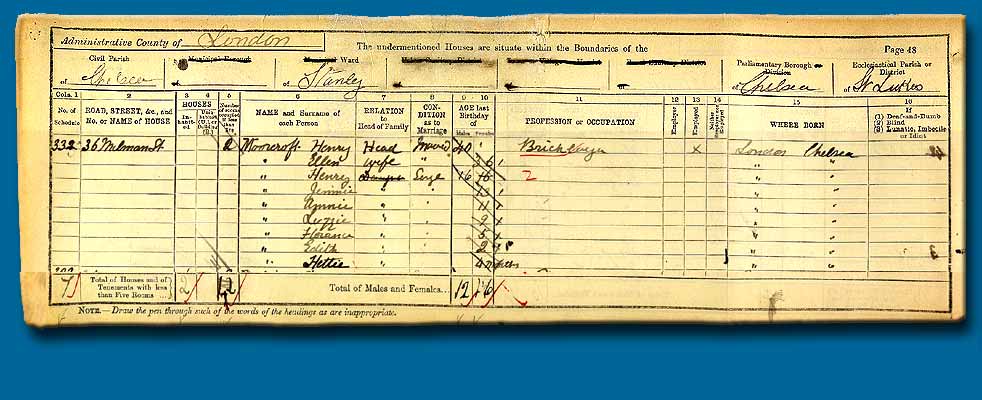 Administrative County of London
The undermentioned Houses are situate within the Boundaries of the
Page 48
Civil Parish
of Chelsea
Municipal Borough
of
Municipal Ward
of Stanley
Parliamentary Borough or Division
of Chelsea
Ecclesiastical Parish or District
of St Lukes
Cols. 1 2 3 4 5 6 7 8 9 10 11 12 13 14 15 16
No. of Schedule
ROAD, STREET, &c., and No. or NAME of HOUSE
HOUSES
Inhabited
NAME and Surname of each Person
RELATION to Head of Family
CONDITION as to Marriage
AGE last Birthday of
Males Females
PROFESSION or OCCUPATION
Employer
Employed
Neither Employer nor Employed
WHERE BORN
If
(1) Deaf-and-Dumb
(2) Blind
(3) Lunatic, Imbecile or Idiot
332 36 Milman St 2 Moorcroft Henry Head 40 Bricklayer x London Chelsea
" Ellen Wife " 36 " "
" Henry Daugr Sinje 16 16 2 " "
" Jennie " " 13 " "
" Annie " " 11 " "
" Luzzie " " 9 " "
" Florance " " 5 " "
" Edith " " 2 " "
" Hettie " " 4 mnths " "
7 Total of Houses and of Tenements with less than Five Rooms ... 2 12 Total of Males and Females... 12 16
NOTE.—Draw the pen through such of the words of the headings as are inappropriate.